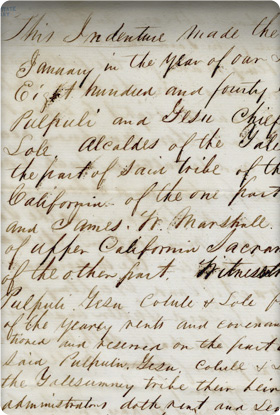 This Indenture made the
January in the year of our
Eight hundred and fourty
Pulpuli and Gesu Chief
Sole, Alcaldes of the Yale
the part of said tribe of th
California of the one part
and James. W. Marshall.
of upper California Sacram
of the other part. Witnesset
Pulpuli. Gesu, Colule & Sole
of the yearey rents and covena
tioned and reserved on the part
said Pulpulu, Gesu. Colule &
the Yallesumney tribe their hei
administrators doth rent and